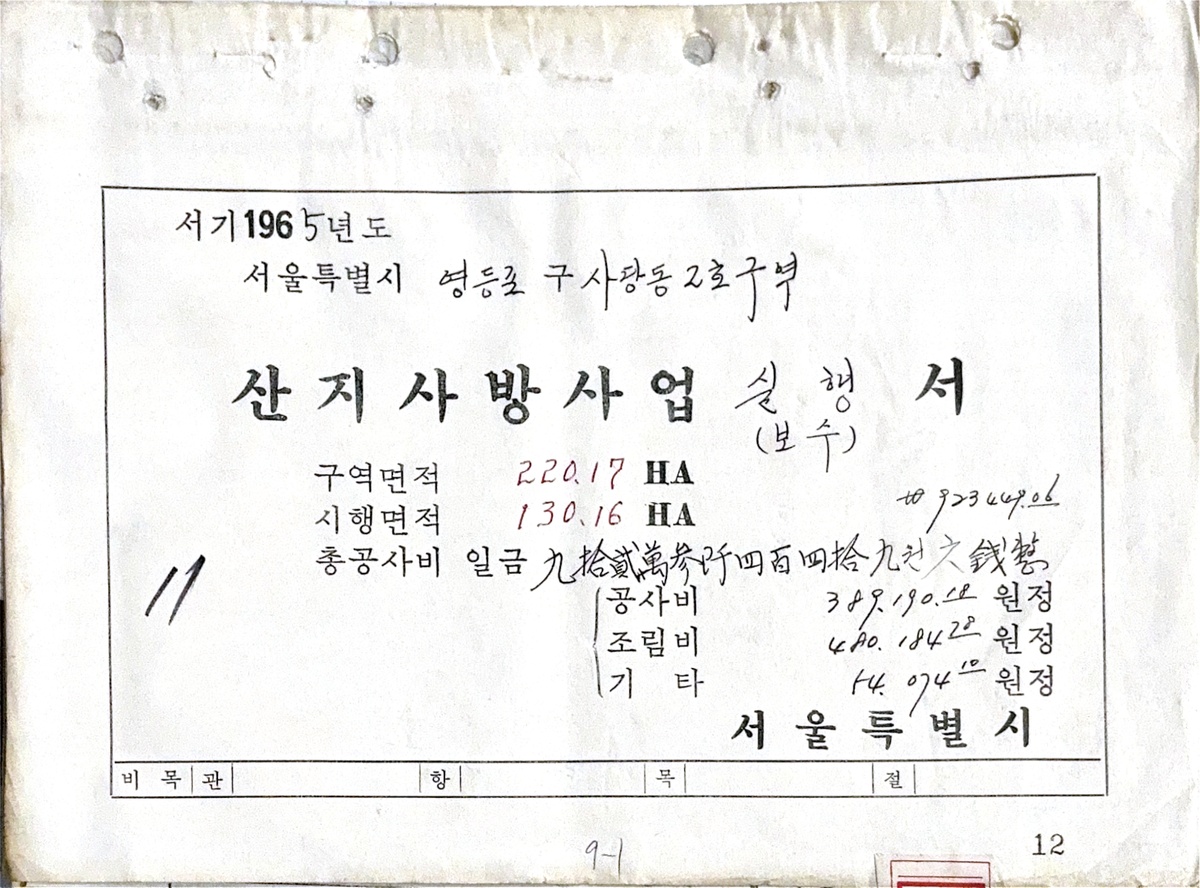 서기1965년도
서울특별시 영등포 구 사당동 2호구역
산지사방사업 실행 서
(보수)
구역면적 220.17 HA
시행면적 130.16 HA
₩923449.06
총공사비 일금 九拾貳萬參阡四百四拾九원六錢整
11
공사비 389.190.18 원정
조림비 480.184.28 원정
기 타 54.074.10 원정
서울특별시
비 목 관 항 목 절
9-1
12